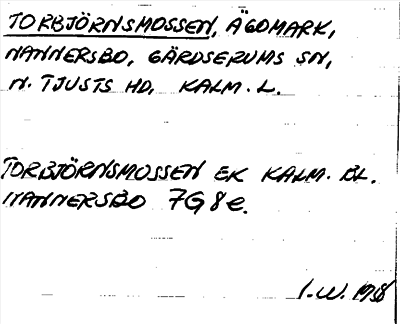 TORBJÖRNSMOSSEN, ÄGOMARK,
NANNERSBO, GÄRDSERUMS SN,
N. TJUSTS HD, KALM. L.
TORBJÖRNSMOSSEN EK KALM. BL.
NANNERSBO 7G8e.
I.W. 1958